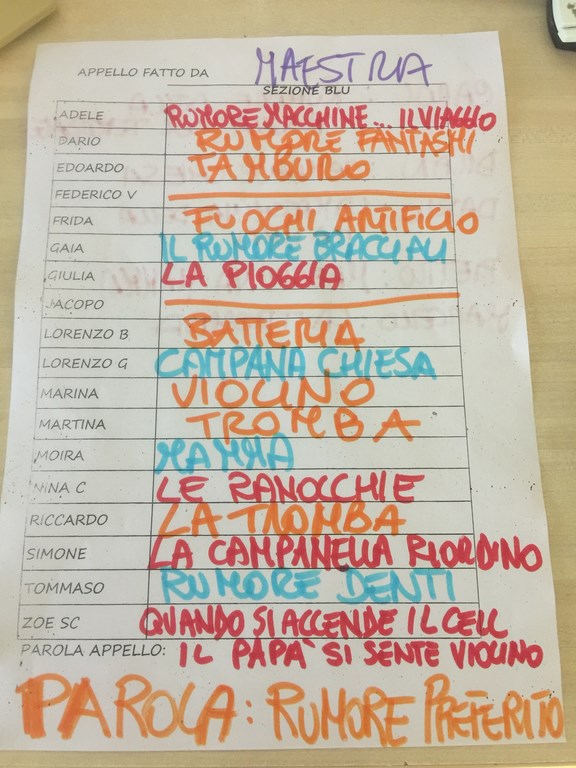 APPELLO FATTO DA MAESTRA
SEZIONE BLU
ADELE RUMORE MACCHINE... IL VIAGGIO
DARIO RUMORE FANTASMI
EDOARDO TAMBURO
FEDERICO V
FRIDA FUOCHI ARTIFICIO
GAIA IL RUMORE BRACCIALI
GIULIA LA PIOGGIA
JACOPO
LORENZO B BATTERIA
LORENZO G CAMPANA CHIESA
MARINA VIOLINO
MARTINA TROMBA
MOIRA MAMMA
NINA C LE RANOCCHIE
RICCARDO LA TROMBA
SIMONE LA CAMPANELLA RIORDINO
TOMMASO RUMORE DENTI
ZOE SC QUANDO SI ACCENDE IL CELL
PAROLA APPELLO: IL PAPÀ SI SENTE VIOLINO
PAROLA: RUMORE PREFERITO